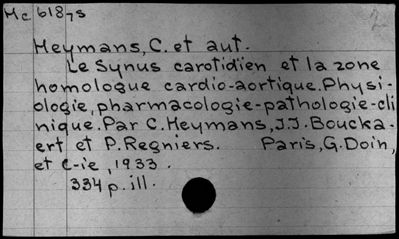 Mc 618/75
Heymans, C. et aut.
Le Synus carotidïen et la zone
homologue cardio-aortique. Physi-
ologie, pharmacologie-pathologie-cli
nique. Par C. Heymans, J.J. Boucka-
ert et P. Regniers. Paris, G. Doin,
et C-ie, 1933.
334 p. ill.